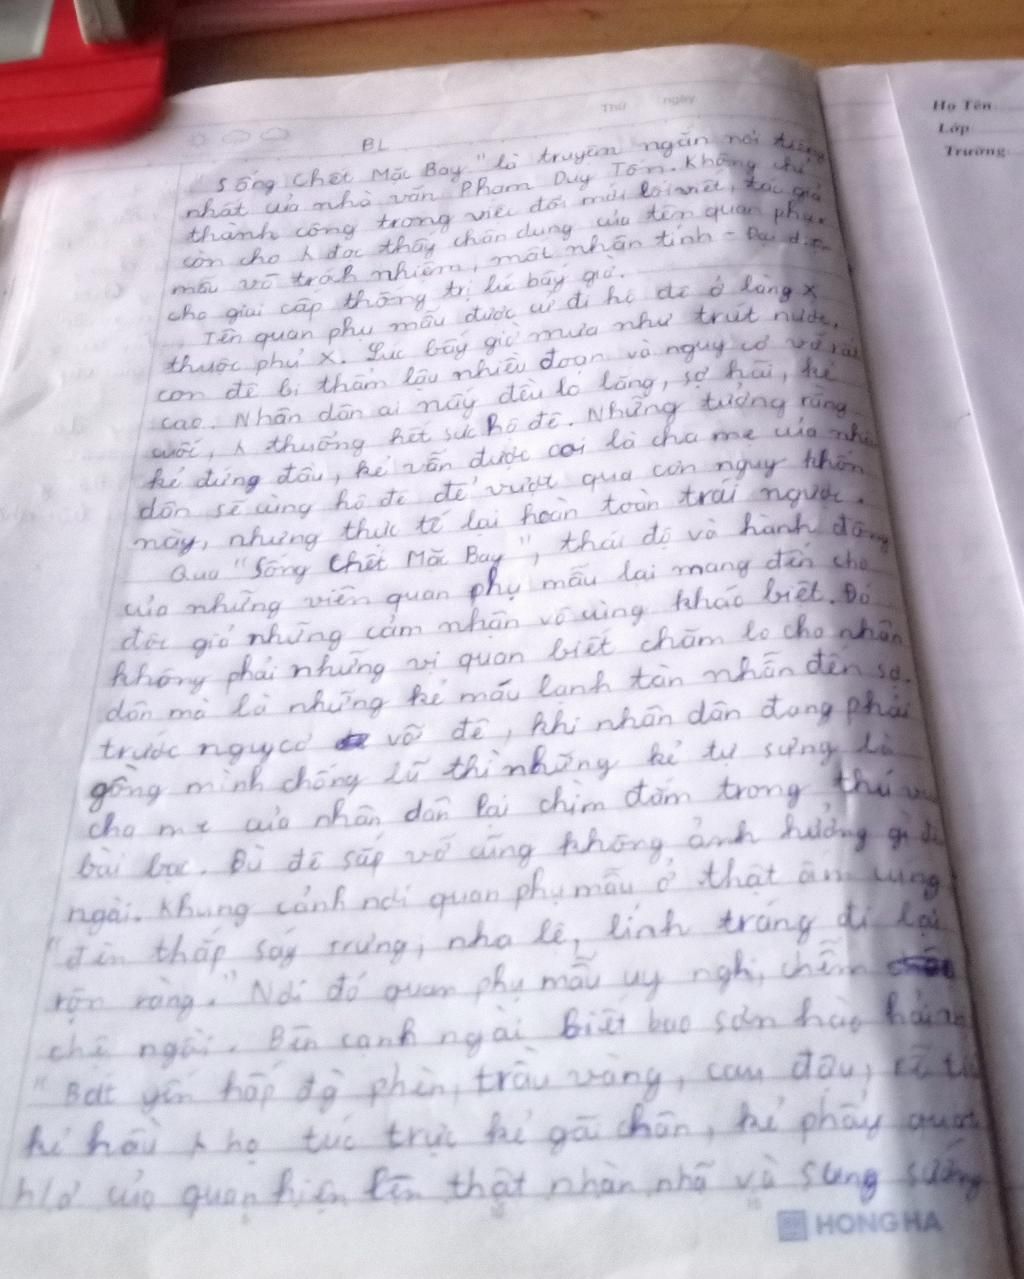 Thứ ngày
BL
"Sống Chết Mặc Bay" là truyện ngắn nổi tiếng
nhất của nhà văn Phạm Duy Tốn. Không chỉ
thành công trong việc đổi mới lối viết, tác giả
còn cho λ đọc thấy chân dung của tên quan phụ
mẫu vô trách nhiệm, mất nhân tính - Đại diện
cho giai cấp thống trị lúc bấy giờ.
Tên quan phụ mẫu được cử đi hộ đê ở làng X
thuộc phủ X. Lúc bấy giờ mưa như trút nước,
con đê bị thẩm lậu nhiều đoạn và nguy cơ vỡ rất
cao. Nhân dân ai nấy đều lo lắng, sợ hãi, kẻ
cuốc, λ thuổng hết sức hộ đê. Những tưởng rằng
kẻ đứng đầu, kẻ vẫn được coi là cha mẹ của nhân
dân sẽ cùng hộ đê để vượt qua cơn nguy khốn
này, nhưng thực tế lại hoàn toàn trái ngược.
Qua "Sống Chết Mặc Bay", thái độ và hành động
của những viên quan phụ mẫu lại mang đến cho
độc giả những cảm nhận vô cùng khác biệt. Đó
không phải những vị quan biết chăm lo cho nhân
dân mà là những kẻ máu lạnh tàn nhẫn đến sợ.
trước nguy cơ vỡ đê, khi nhân dân đang phải
gồng mình chống lũ thì những kẻ tự sưng là
cha mẹ của nhân dân lại chìm đắm trong thú vui
bài bạc. Dù đê sắp vỡ cũng không ảnh hưởng gì đến
ngài. Khung cảnh nơi quan phụ mẫu ở thật ấm cúng
"đèn thắp sáy trưng, nha lệ, lính tráng đi lại
rộn ràng." Nơi đó quan phụ mẫu uy nghi, chễm
chệ ngồi. Bên cạnh ngài biết bao sơn hào hải
"Bát yến hấp đg phèn, trầu vàng, cau đậu, rễ tía
kẻ hầu λ hạ túc trực kẻ gãi chân, kẻ phẩy quạt
h/ả của quan hiện lên thật nhàn nhã và sung sướng
HONG HA
Họ Tên
Lớp
Trường: